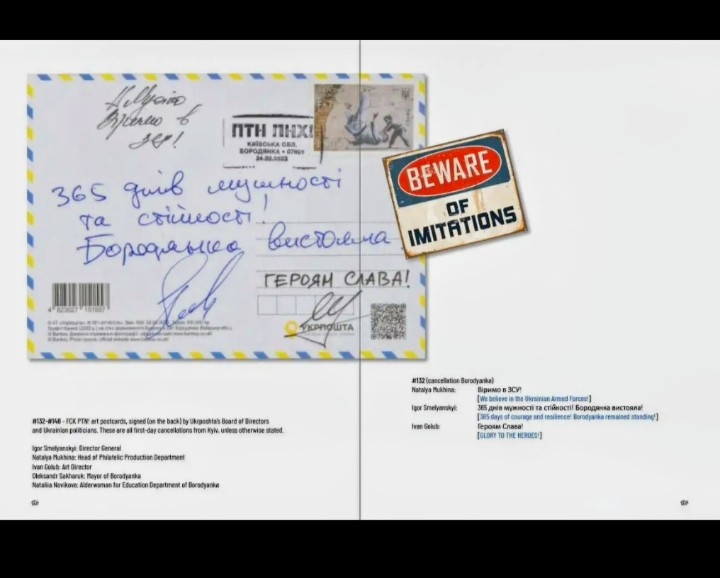 Віримо в
ЗСУ!
ПТН ПНХ!
КИЇВСЬКА ОБЛ.
БОРОДЯНКА • 07801
24.02.2023
365 днів мужності
та стійкості!
Бородянка вистояла
ГЕРОЯМ СЛАВА!
УКРПОШТА
BEWARE
OF
IMITATIONS
#132-#148 - FCK PTN! art postcards, signed (on the back) by Ukrposhta's Board of Directors
and Ukrainian politicians. These are all first-day cancellations from Kyiv, unless otherwise stated.
Igor Smelyanskyi: Director General
Natalya Mukhina: Head of Philatelic Production Department
Ivan Golub: Art Director
Oleksandr Sakharuk: Mayor of Borodyanka
Nataliia Novikova: Alderwoman for Education Department of Borodyanka
#132 (cancellation Borodyanka)
Natalya Mukhina: Віримо в ЗСУ!
[We believe in the Ukrainian Armed Forces!]
Igor Smelyanskyi: 365 днів мужності та стійкості! Бородянка вистояла!
[365 days of courage and resilience! Borodyanka remained standing!]
Ivan Golub: Героям Слава!
[GLORY TO THE HEROES!]